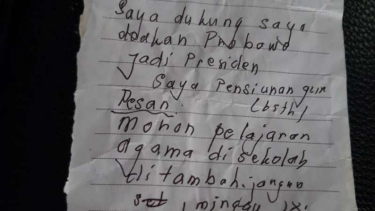 Saya dukung saya
doakan Prabowo
Jadi Presiden
Saya Pensiunan
(bsth)
Pesan
mohon pelajaran
agama disekolah
ditambah. jangan
1 minggu 1x.